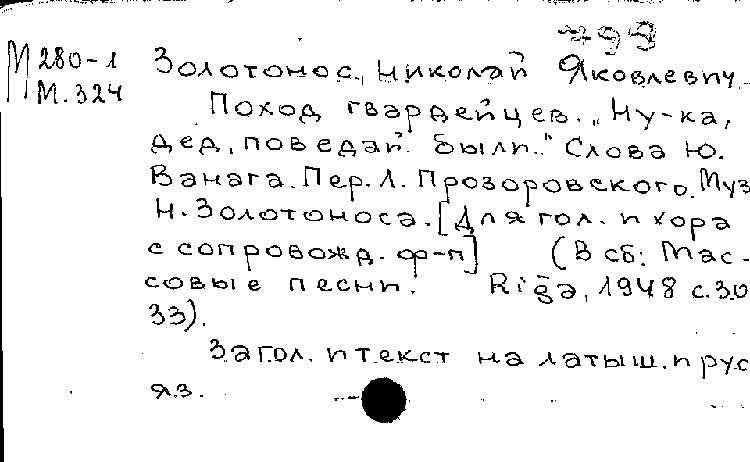 793
М 280-1
М.324
Золотонос, Николай Яковлевич.
Поход гвардейцев. „Ну-ка,
дед, поведай были.." Слова Ю.
Ванага. Пер. Л. Прозоровского. Муз
Н. Золотоноса. [Для гол. и хора
с сопровожд. ф-п] (В сб: Мас-
совые песни. Rīgā, 1948 с. 30
33).
Загол. и текст на латыш. и рус
яз.